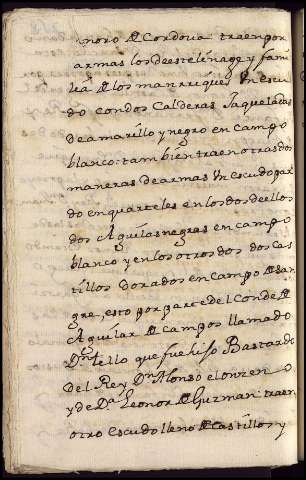 noro de Cordova traen por
armas los de este lenage y fami
lia de los manrriques Un escu
do con dos Calderas Jaqueladas
de amarillo y negro en campo
blanco: tambien traen otras dos
maneras de armas Un escudo par
do en quarteles en los dos de ellos
dos Aguilas negras en campo
blanco y en los otros dos dos cas
tillos dorados en campo de san
gre, esto por parte del Conde de
Aguilar de campos llamado
Dn. tello que fue hijo Bastardo
del Rey Dn. Alonso el onzen o
y de Da. Leonor de Guzman: traen
otro escudo lleno de castillos y